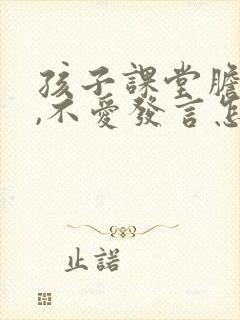 孩子課堂膽
,不愛發言怎
止諾